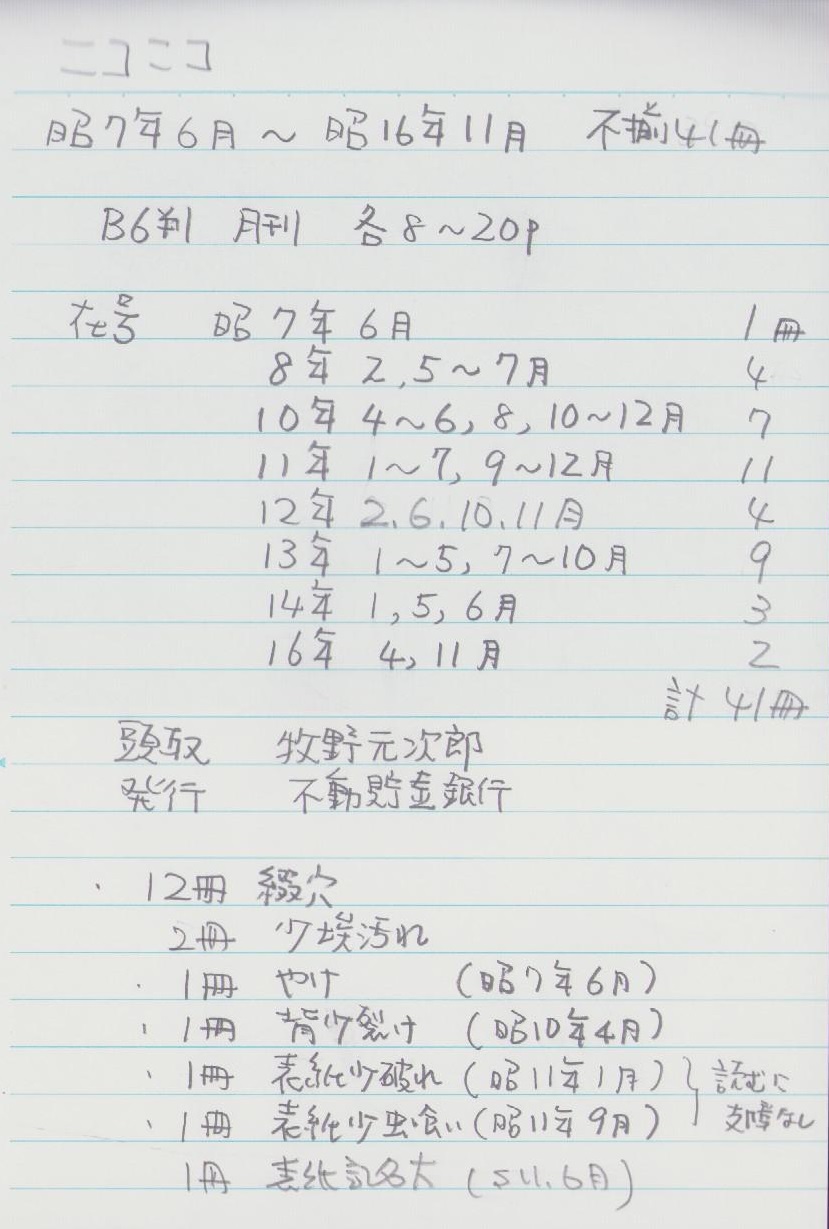 ニコニコ
昭7年6月 ~ 昭16年11月 不揃41冊
B6判 月刊 各8~20p
在号 昭7年6月 1冊
8年 2,5~7月 4
10年 4~6, 8, 10~12月 7
11年 1~7, 9~12月 11
12年 2.6.10.11月 4
13年 1~5, 7~10月 9
14年 1, 5, 6月 3
16年 4, 11月 2
計 41冊
頭取 牧野元次郎
発行 不動貯金銀行
・ 12冊 綴穴
2冊 少埃汚れ
・ 1冊 やけ (昭7年6月)
・ 1冊 背少裂け (昭10年4月)
・ 1冊 表紙少破れ (昭11年1月) 読むに
・ 1冊 表紙少虫喰い (昭11年9月) 支障なし
1冊 表紙記名大 (S11.6月)